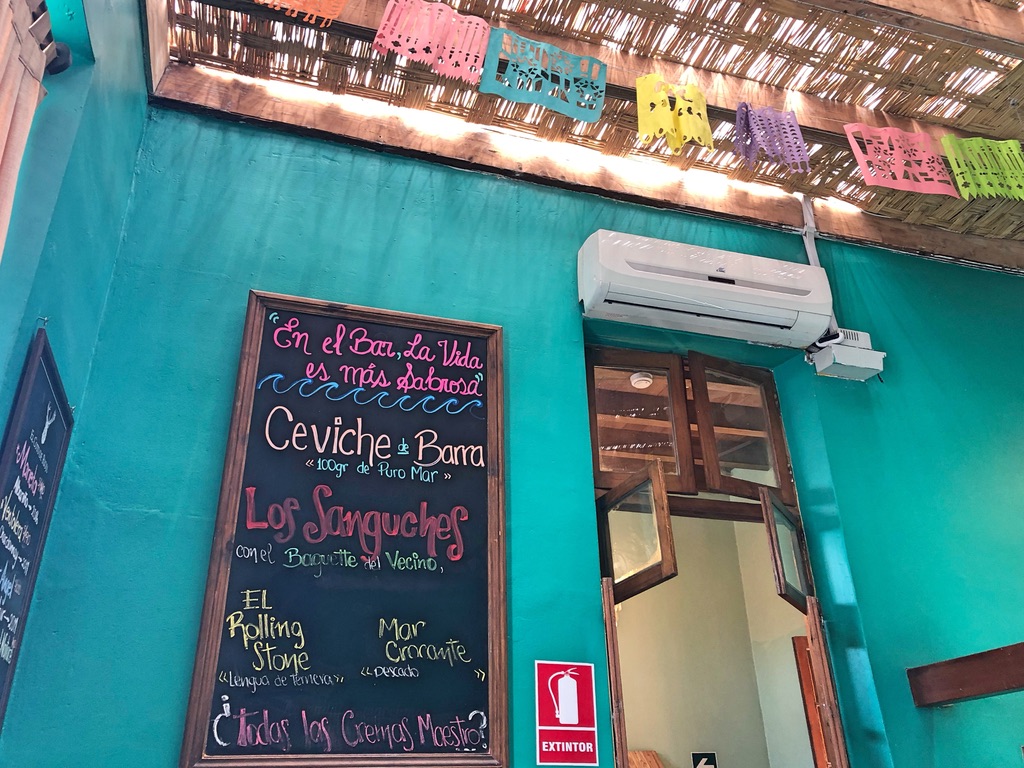 "En el Bar, La Vida
es más Sabrosa"
Ceviche de Barra
"100gr de Puro Mar"
Los Sanguches
con el Baguette del Vecino,
EL
Rolling
Stone
"Lengua de Ternera"
Mar
Crocante
"pescado"
¿Todas las Cremas Maestro?
EXTINTOR